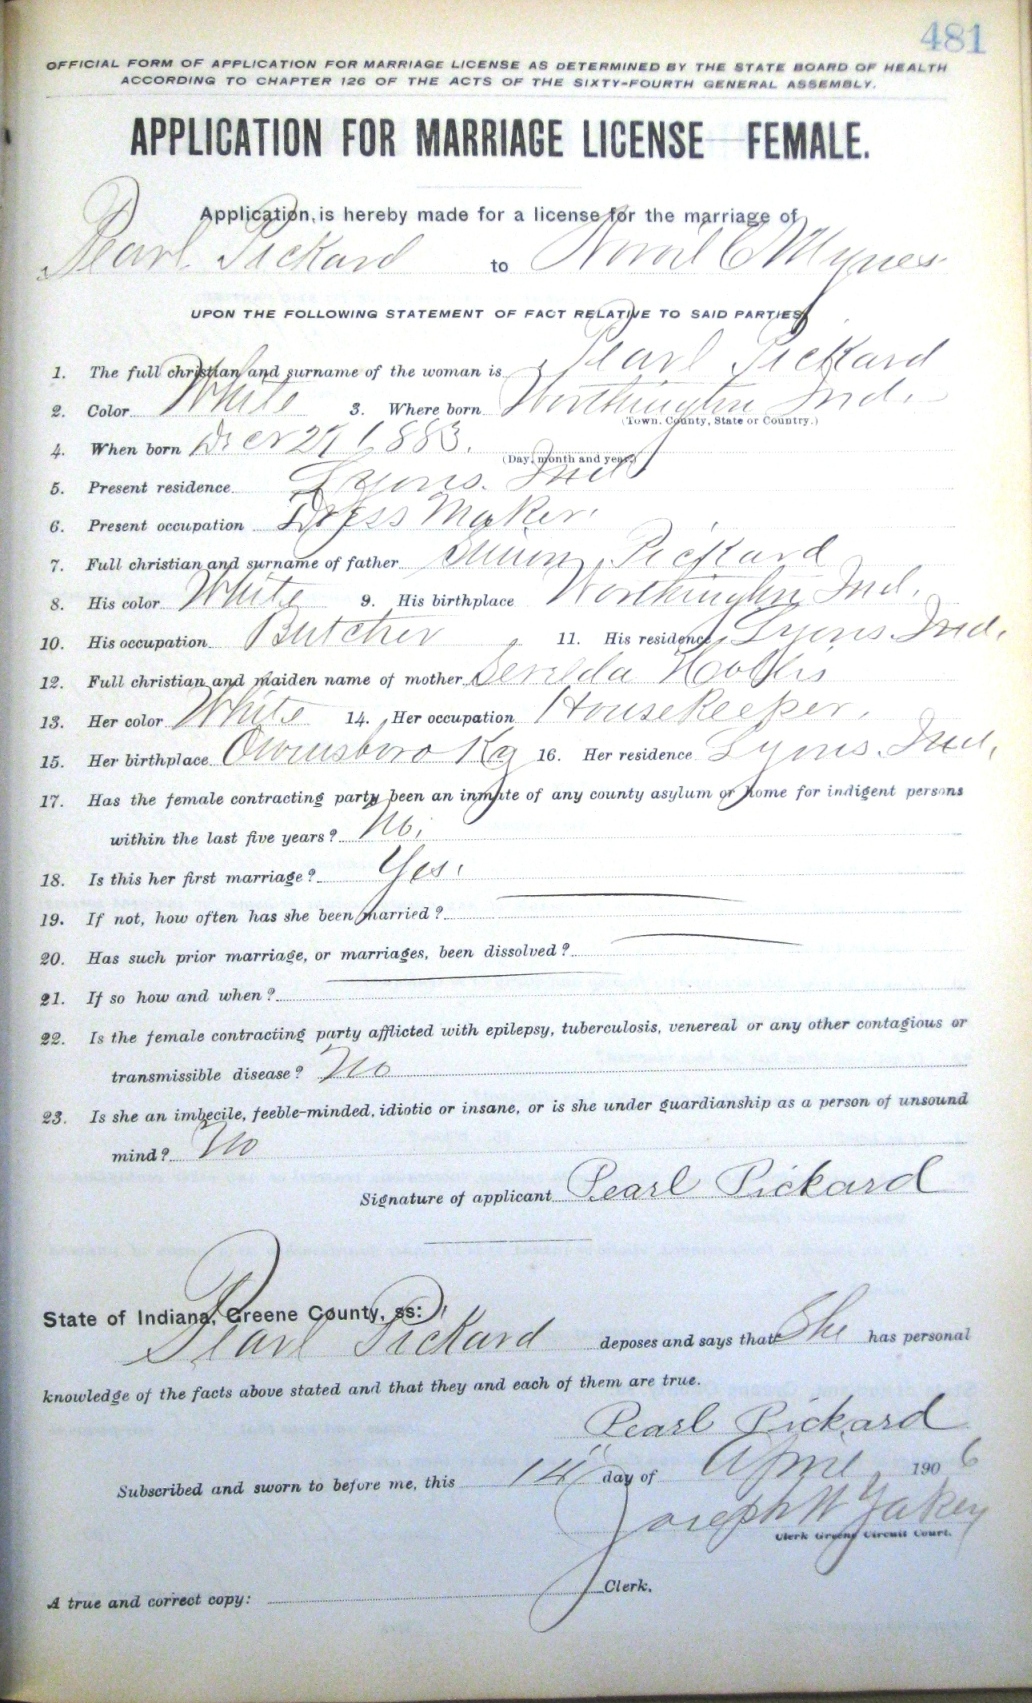 481
OFFICIAL FORM OF APPLICATION FOR MARRIAGE LICENSE AS DETERMINED BY THE STATE BOARD OF HEALTH
ACCORDING TO CHAPTER 126 OF THE ACTS OF THE SIXTY-FOURTH GENERAL ASSEMBLY.
APPLICATION FOR MARRIAGE LICENSE FEMALE.
Application, is hereby made for a license for the marriage of
Pearl Pickard to C Mynes
UPON THE FOLLOWING STATEMENT OF FACT RELATIVE TO SAID PARTIES
1. The full christian and surname of the woman is Pearl Pickard
2. Color White 3. Where born Worthington Ind.
(Town, County, State or Country.)
4. When born 27 1883.
(Day, month and year)
5. Present residence Lyons. Ind
6. Present occupation Dress Maker.
7. Full christian and surname of father Pickard
8. His color White 9. His birthplace Worthington Ind.
10. His occupation Butcher 11. His residence Lyons. Ind.
12. Full christian and maiden name of mother
13. Her color White 14. Her occupation Housekeeper.
15. Her birthplace Owinsboro Ky 16. Her residence Lyons. Ind.
17. Has the female contracting party been an inmate of any county asylum or home for indigent persons
within the last five years? No.
18. Is this her first marriage? Yes.
19. If not, how often has she been married?
20. Has such prior marriage, or marriages, been dissolved?
21. If so how and when?
22. Is the female contracting party afflicted with epilepsy, tuberculosis, venereal or any other contagious or
transmissible disease? No
23. Is she an imbecile, feeble-minded, idiotic or insane, or is she under guardianship as a person of unsound
mind? No
Signature of applicant Pearl Pickard
State of Indiana, Greene County, ss:
Pearl Pickard deposes and says that She has personal
knowledge of the facts above stated and that they and each of them are true.
Pearl Pickard
Subscribed and sworn to before me, this 14" day of April 1906
Joseph W Yakey
Clerk Greene Circuit Court.
A true and correct copy: Clerk.